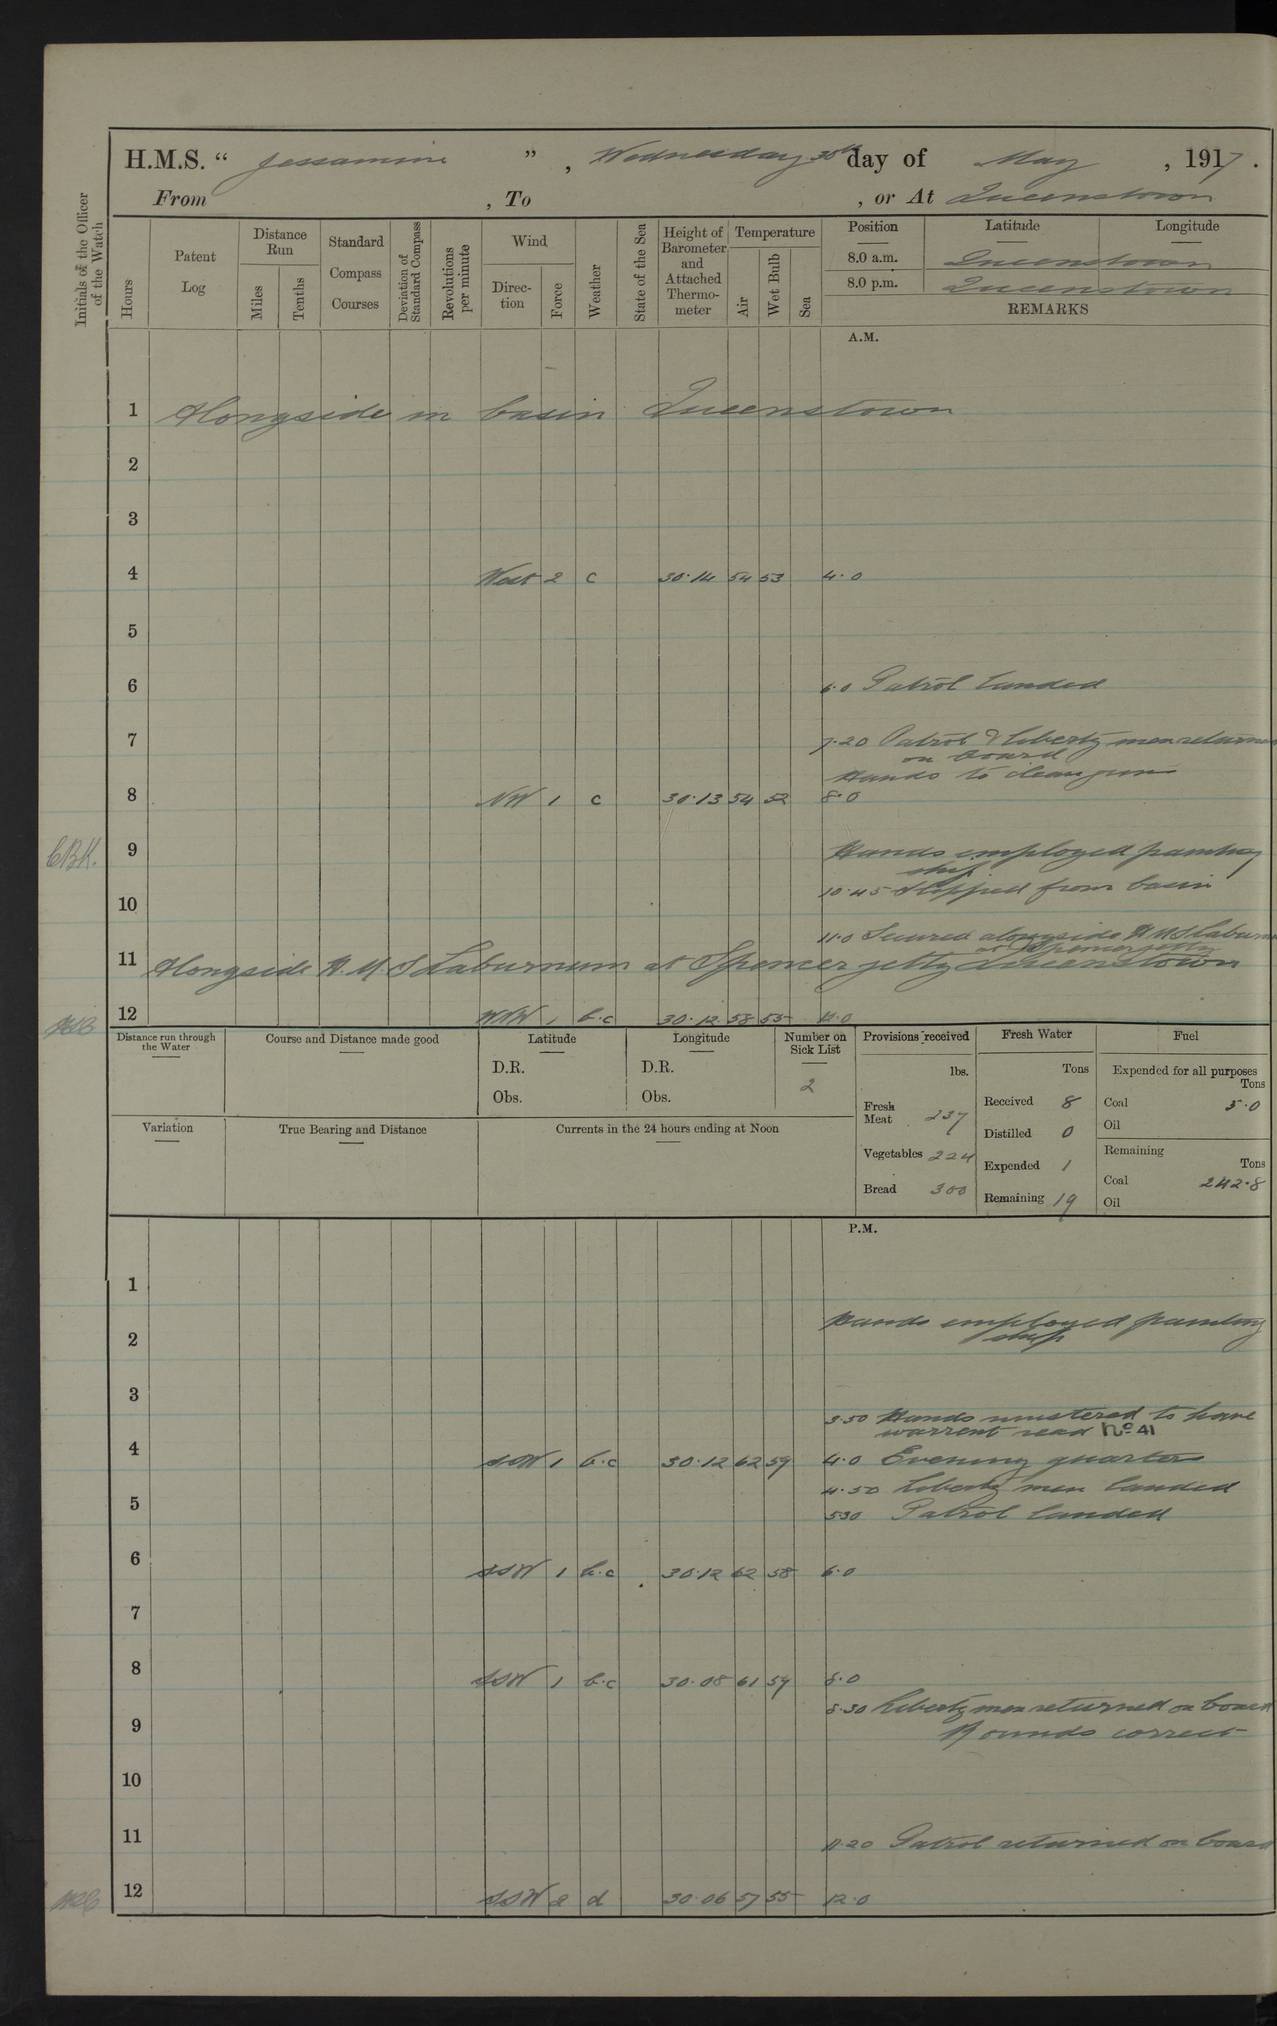 H.M.S. “ Jessamine ” , Wednesday 30th day of May , 1917 .
From , To , or At Queenstown
Initials of the Officer of the Watch
Hours
Patent Log
Distance Run
Miles
Tenths
Standard Compass Courses
Deviation of Standard Compass
Revolutions per minute
Wind
Direc- tion
Force
Weather
State of the Sea
Height of Barometer and Attached Thermo- meter
Temperature
Air
Wet Bulb
Sea
Position Latitude Longitude
8.0 a.m. Queenstown
8.0 p.m. Queenstown
REMARKS
A.M.
1 Alongside in basin Queenstown
2
3
4 West 2 c 30.14 54 53 4.0
5
6 6.0 Patrol landed
7 7.20 Patrol & liberty men returned
on board
Hands to clean guns
8 NW 1 c 30.13 54 52 8.0
CBK. 9 Hands employed painting
ship
10 10.45 Slipped from basin
11.0 Secured alongside H.M.S Laburnum
at Spencer jetty
11 Alongside H.M.S Laburnum at Spencer jetty Queenstown
12 WNW 1 b.c 30.12 58 55 12.0
Distance run through the Water
Course and Distance made good
Latitude
D.R.
Obs.
Longitude
D.R.
Obs.
Number on Sick List
2
Provisions received
lbs.
Fresh Meat 237
Vegetables 224
Bread 300
Fresh Water
Tons
Received 8
Distilled 0
Expended 1
Remaining 19
Fuel
Expended for all purposes
Tons
Coal 5.0
Oil
Remaining
Tons
Coal 242.8
Oil
Variation
True Bearing and Distance
Currents in the 24 hours ending at Noon
P.M.
1
Hands employed painting
2 ship
3
3.50 Hands mustered to have
warrent read No 41
4 SSW 1 b.c 30.12 62 59 4.0 Evening quarters
4.50 Liberty men landed
5 5.30 Patrol landed
6 SSW 1 b.c 30.12 62 58 6.0
7
8 SSW 1 b.c 30.08 61 59 8.0
8.30 Liberty men returned on board
9 Rounds correct
10
11 11.20 Patrol returned on board
12 SSW 2 d 30.06 57 55 12.0